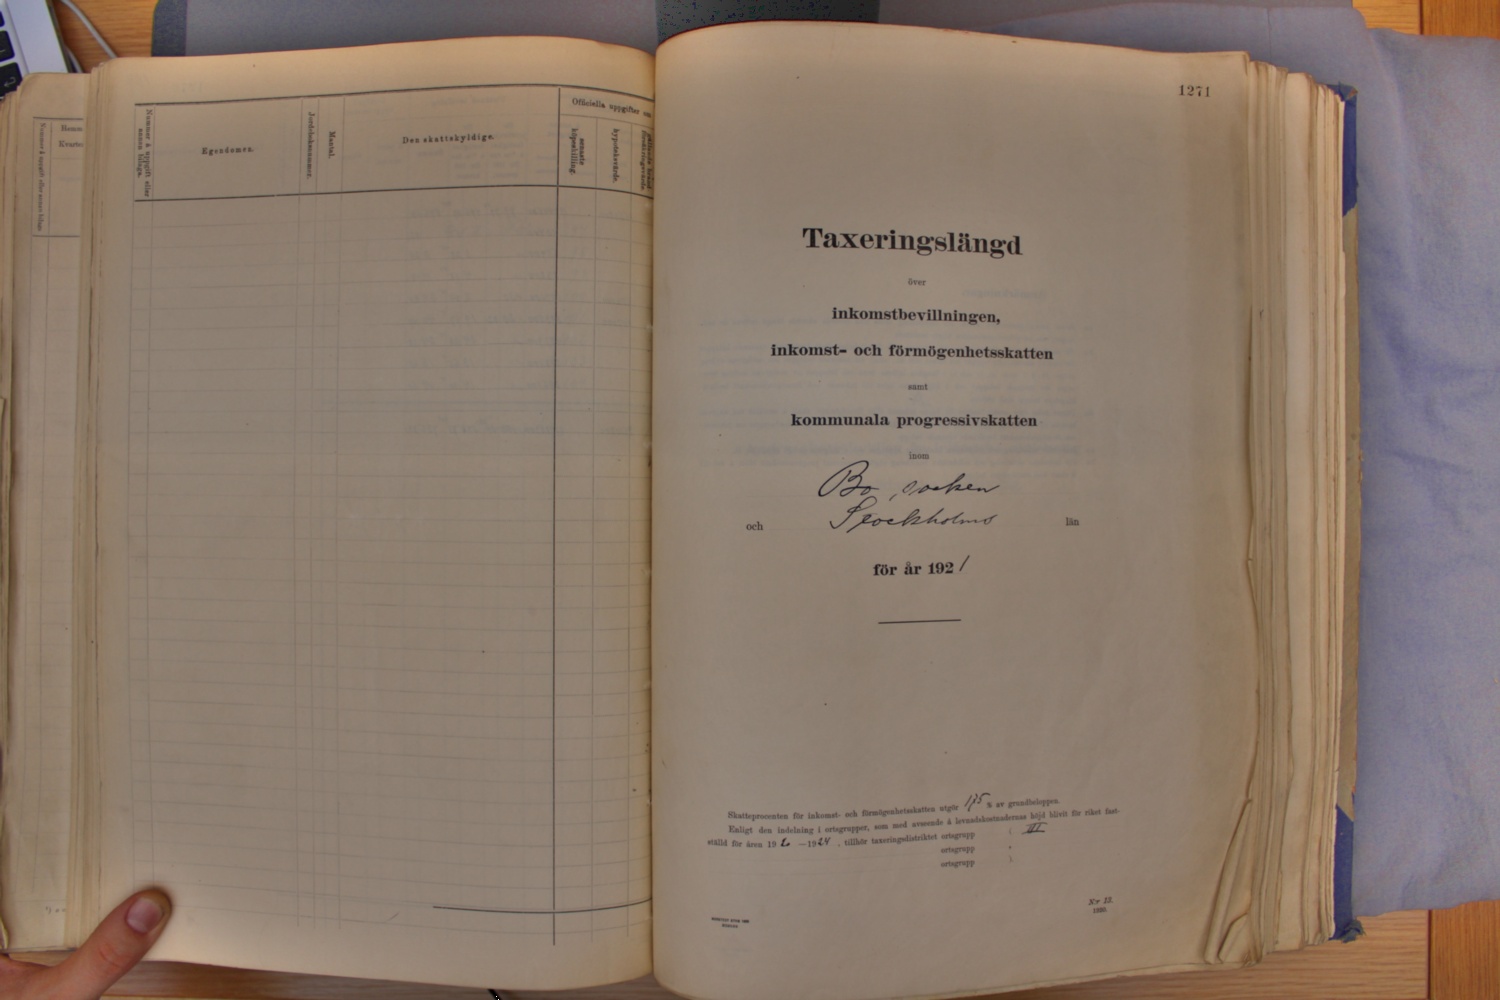 Hemm
Kvarte
Nummer å uppgift eller annan bilaga.
Egendomen.
Jordeboksnummer.
Mantal.
Den skattskyldige.
Officiella uppgifter om
senaste köpeskilling.
hypoteksvärde.
1271
Taxeringslängd
över
inkomstbevillningen,
inkomst- och förmögenhetsskatten
samt
kommunala progressivskatten
inom
Bo socken
och Stockholms län
för år 1921
Skatteprocenten för inkomst- och förmögenhetsskatten utgör % av grundbeloppen.
Enligt den indelning i ortsgrupper, som med avseende å levnadskostnadernas höjd blivit för riket fast-
ställd för åren 19 —1924, tillhör taxeringsdistriktet ortsgrupp III
ortsgrupp
ortsgrupp
N:r 12.
1920.